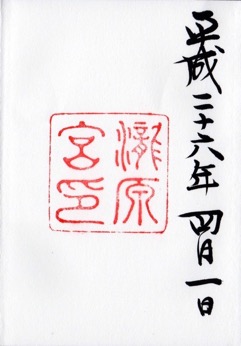 平成二十六年 四月一日
瀧原
宮印